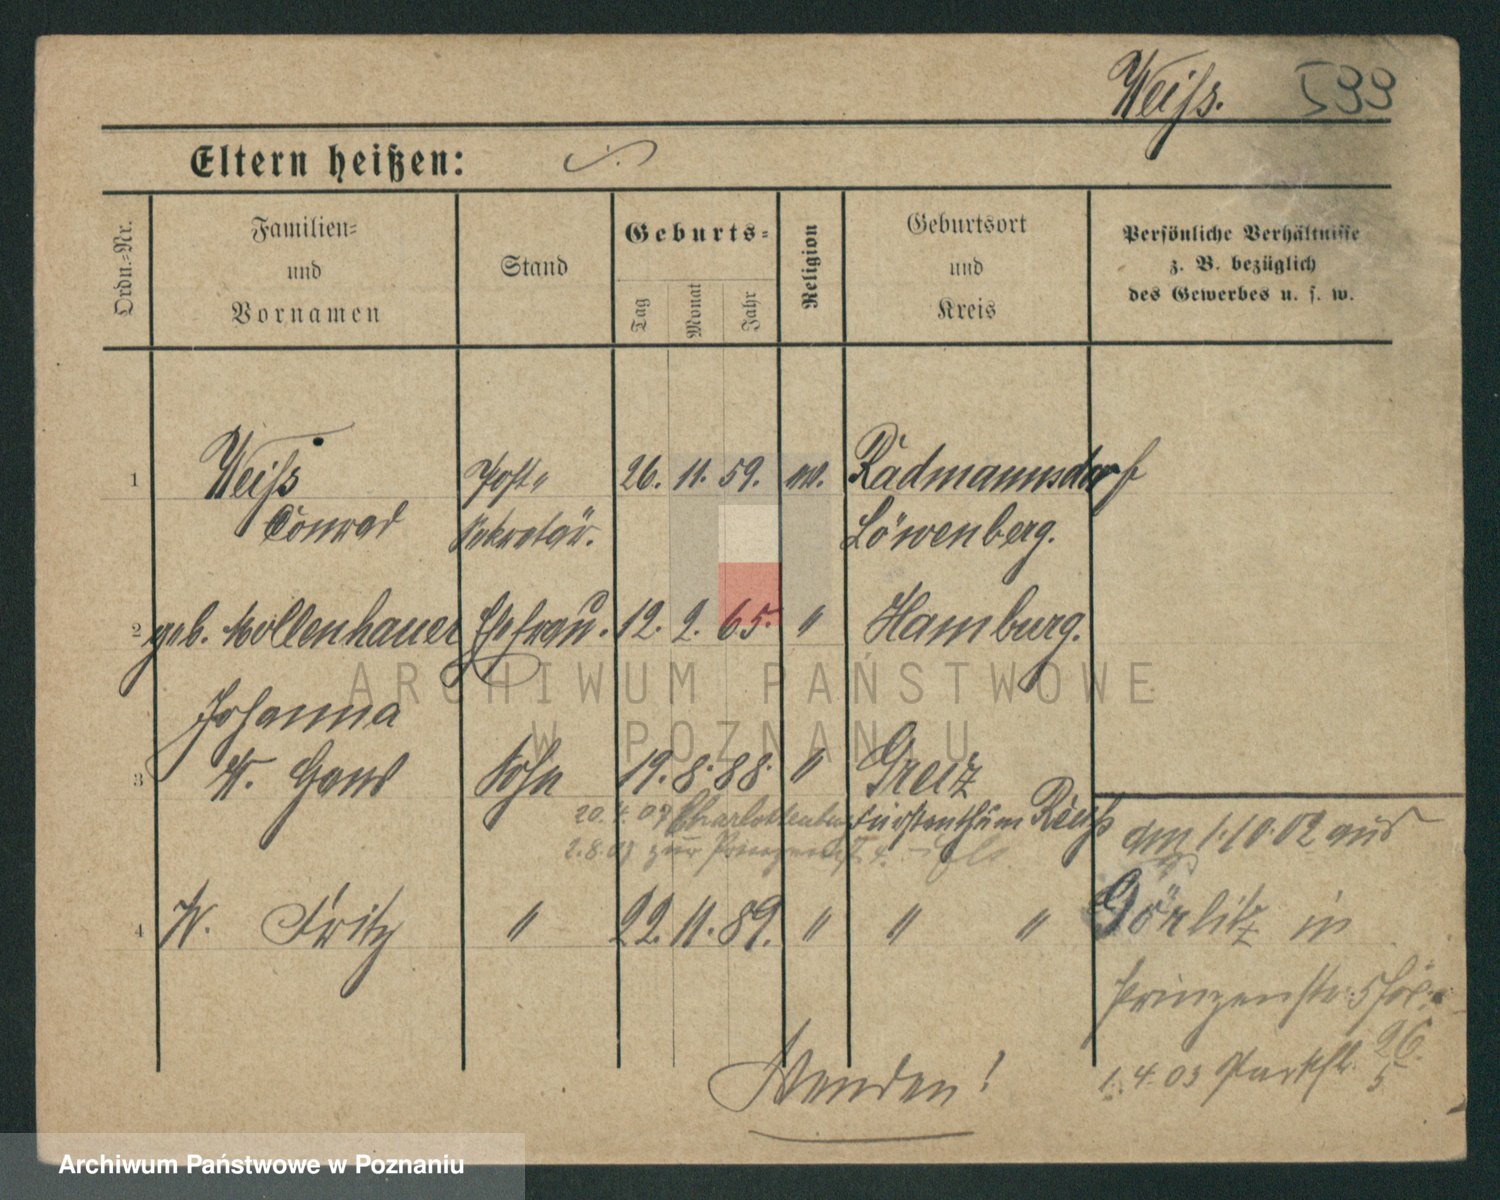 Weiſs. 533
Eltern heißen: ./.
Ordn.-Nr.
Familien- und Vornamen
Stand
Geburts-
Tag
Monat
Jahr
Religion
Geburtsort und Kreis
Persönliche Verhältnisse
z. B. bezüglich
des Gewerbes u. s. w.
1 Weiſs Post- 26. 11. 59. ev. Rädmannsdorf
Conrad Sekretär. Löwenberg.
2 geb. Mollenhauer Ehefrau. 12. 2. 65. " Hamburg.
Johanna
3 W. Hans Sohn 19. 8. 88. " Greiz
20. 4. 07 Charlottenburg Fürstenthum Reuß
2.8.07 zur
am 1.10.02 aus
4 W. Fritz " 22. 11. 89. " " " Görlitz in
Prinzenstr. 5
1. 4. 03 Parkstr. 26.
5
Wenden!
ARCHIWUM PAŃSTWOWE
W POZNANIU
Archiwum Państwowe w Poznaniu